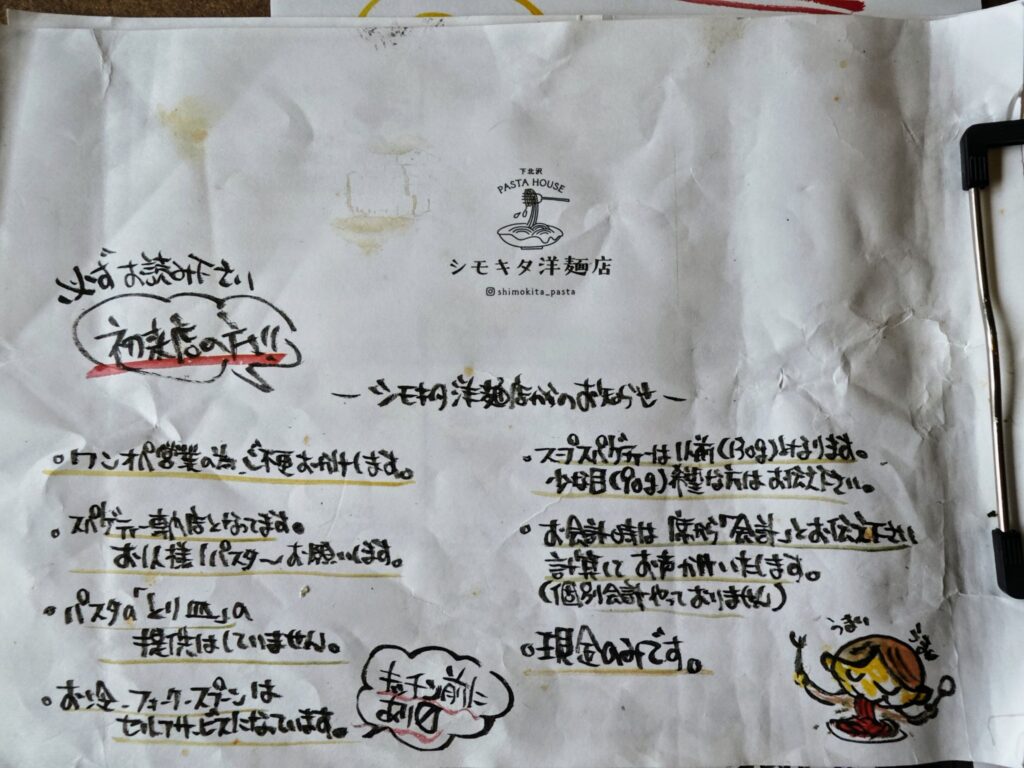 下北沢
PASTA HOUSE
シモキタ洋麺店
shimokita_pasta
必ずお読み下さい
初来店の方!!
－シモキタ洋麺店からのお知らせ－
。ワンオペ営業の為ご不便おかけします。
。スパゲティー専門店となってます。
お1人様1パスタ〜お願いします。
。パスタの「とり皿」の
提供はしていません。
。お冷・フォーク・スプーンは
セルフサービスになっています。
キッチン前に
あり〼
。スパゲティーは1人前(130g)
少な目(90g)希望な方はお伝え下さい。
。お会計時は席から「会計」とお伝え下さい
計算してお声かけいたします。
(個別会計やっておりません)
。現金のみです。
うまい
うまい